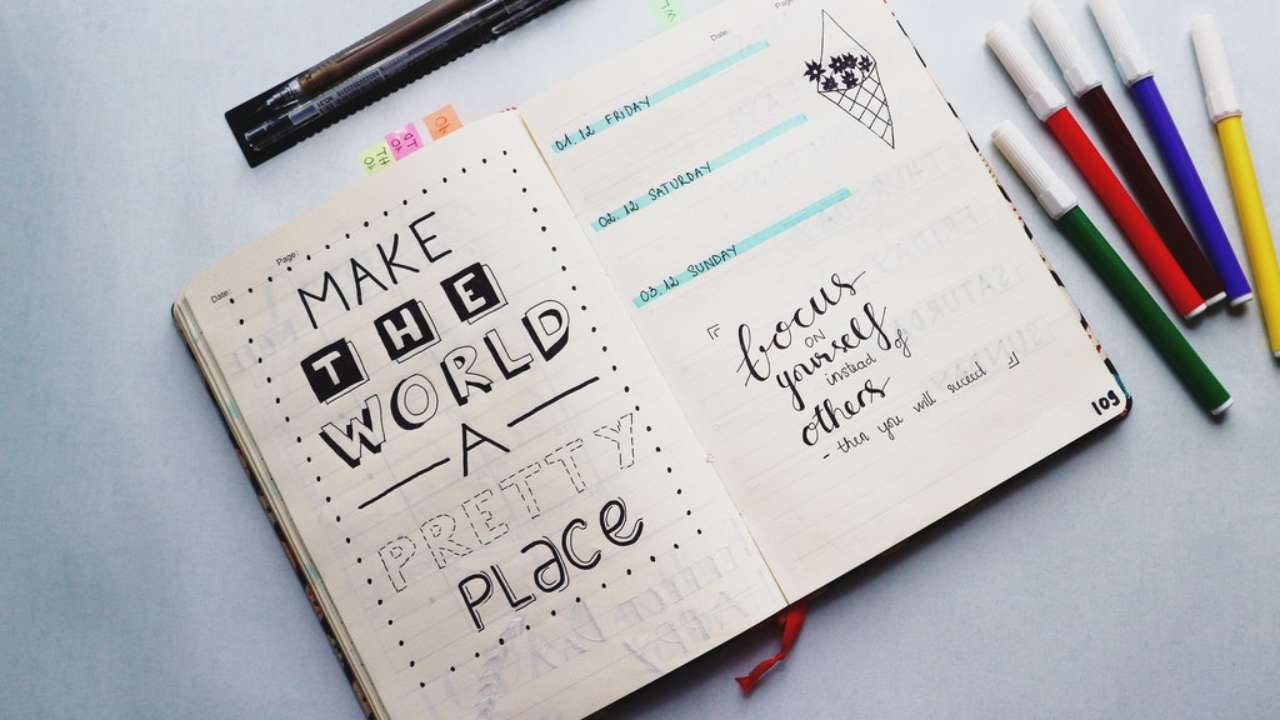 Date:
Page:
MAKE
THE
WORLD
A
PRETTY
PLace
Date:
Page:
01.12 FRIDAY
02.12 SATURDAY
03.12 SUNDAY
『focus
ON
yourself
instead of
others
- then you will succeed 』
109